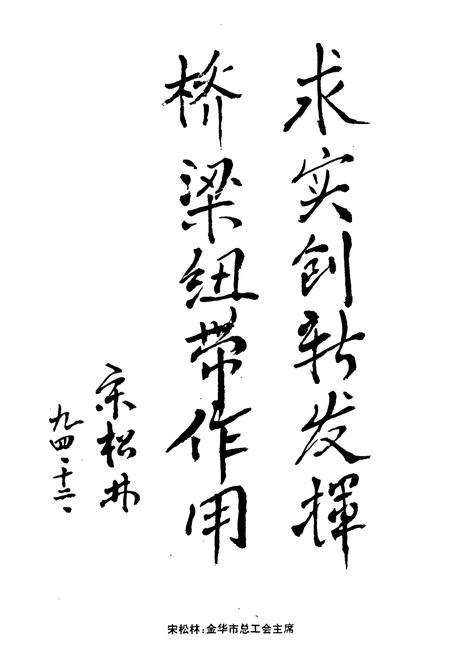 求实创新发挥
桥梁纽带作用
宋松林
九四、十二、
宋松林:金华市总工会主席